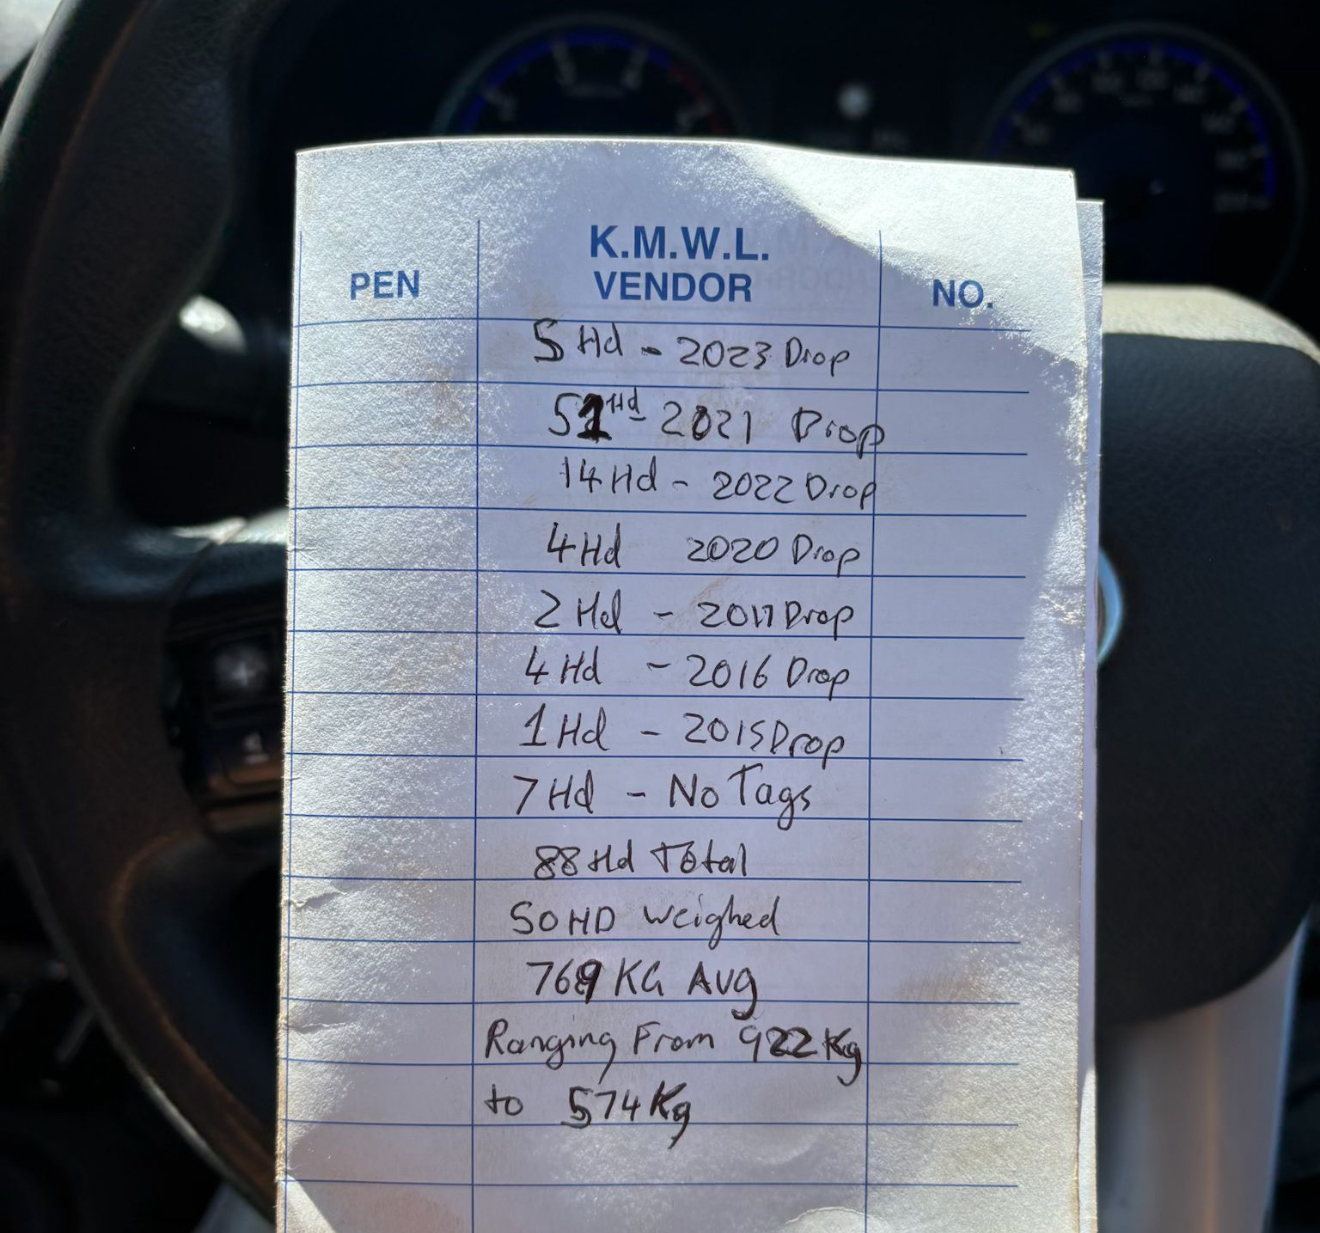 K.M.W.L.
PEN VENDOR NO.
5 Hd - 2023 Drop
51 Hd - 2021 Drop
14 Hd - 2022 Drop
4 Hd 2020 Drop
2 Hd - 2017 Drop
4 Hd - 2016 Drop
1 Hd - 2015 Drop
7 Hd - No Tags
88 Hd Total
50 HD Weighed
769 KG AVG
Ranging From 922 Kg
to 574 Kg